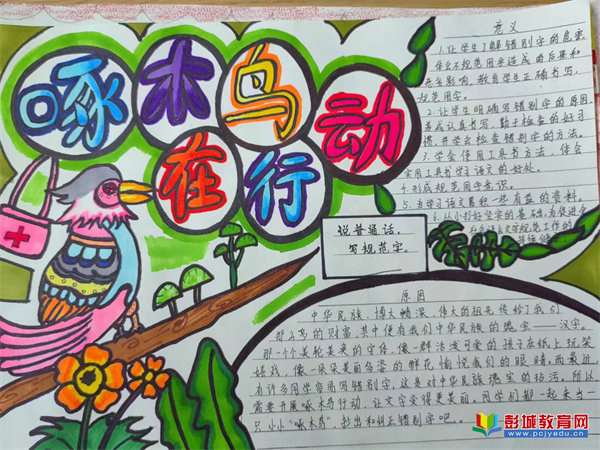 啄木鸟
在行动
说普通话，
写规范字。
意义
1.让学生了解错别字的危害，
体会不规范用字造成的后果和
危害影响，教育学生正确书写，
规范用字。
2.让学生明确写错别字的原因，
养成认真书写，勤于检查的好习
惯，并学会检查错别字的方法。
3.学会使用工具书方法，体会
实用工具书学习语文的好处。
4.形成规范用字意识。
5.为学习语文累积一些有益的资料。
6.从小打好坚实的基础，为促进全
社会语言文字规范工作的
原因
中华民族，博大精深，伟大的祖先传给了我们
那么多的财富，其中便有我们中华民族的瑰宝——汉字。
那一个个美轮美奂的字体，像一群活泼可爱的孩子在纸上玩笑
嬉戏，像一朵朵美丽多姿的鲜花愉悦我们的眼睛，而最近，
有许多同学容易写错别字，这是对中华民族瑰宝的玷污，所以
需要开展啄木鸟行动，让文字变得更美丽，同学们都一起来当一
只小小“啄木鸟”，找出和纠正错别字吧。
彭城教育网
www.pcjyedu.cn